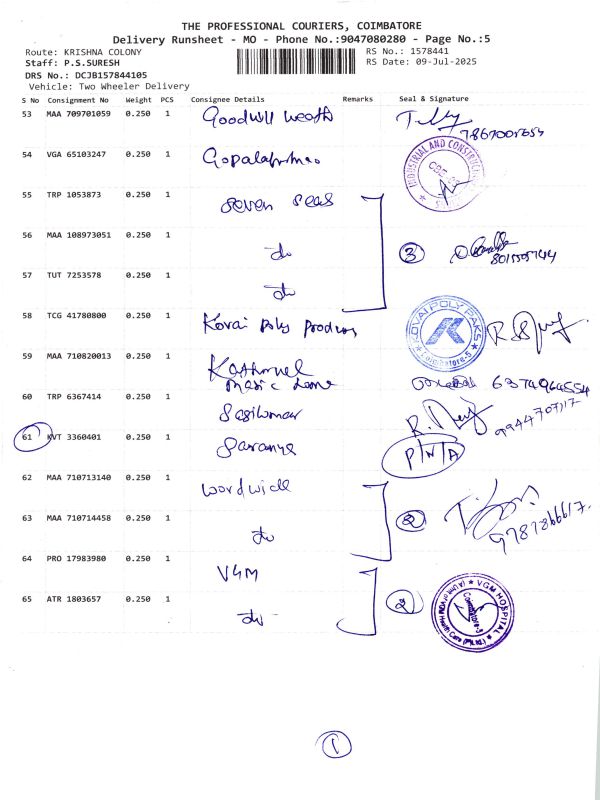 THE PROFESSIONAL COURIERS, COIMBATORE
Delivery Runsheet - MO - Phone No.:9047080280 - Page No.:5
Route: KRISHNA COLONY
RS No.: 1578441
Staff: P.S.SURESH
RS Date: 09-Jul-2025
DRS No.: DCJB157844105
Vehicle: Two Wheeler Delivery
S No Consignment No Weight PCS Consignee Details Remarks Seal & Signature
53 MAA 709701059 0.250 1 Goodwill
54 VGA 65103247 0.250 1
INDUSTRIAL AND
55 TRP 1053873 0.250 1 Seven Seas
56 MAA 108973051 0.250 1 do 3
57 TUT 7253578 0.250 1 do
58 TCG 41780800 0.250 1 Kovai Poly
KOVAI POLY PAKS Coimbatore-5
59 MAA 710820013 0.250 1
6374964554
60 TRP 6367414 0.250 1 Sasikumar
9944707117
61 KVT 3360401 0.250 1 Saranya P/N/A
62 MAA 710713140 0.250 1 wordwide
2
63 MAA 710714458 0.250 1 do
64 PRO 17983980 0.250 1 VGM
2
VGM HOSPITAL
65 ATR 1803657 0.250 1 do
1